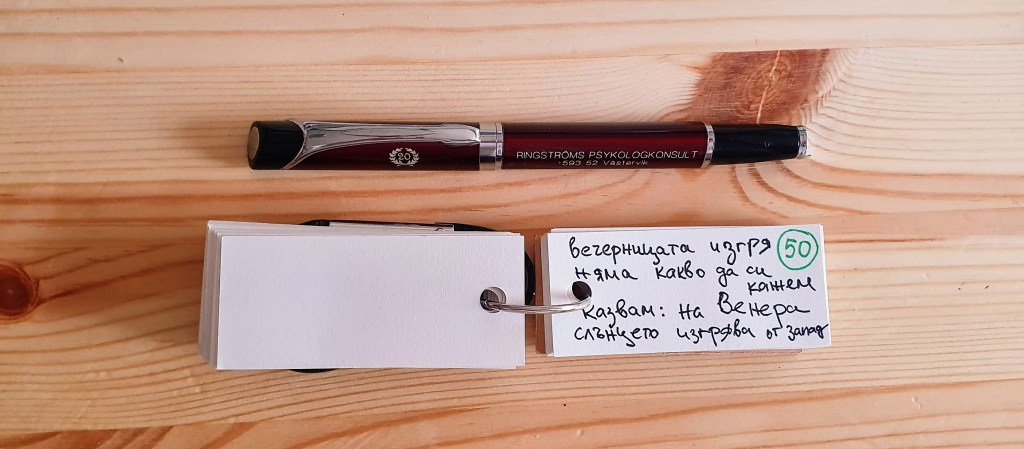 20
RINGSTRÖMS PSYKOLOGKONSULT
593 52 Västervik
вечерницата изгря 50
няма какво да си
кажем
казвам: на Венера
слънцето изгрява от запад